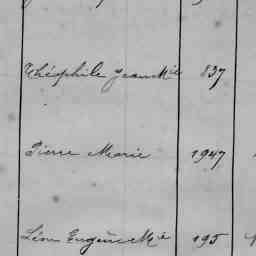 Théophile Jean Mie 837
Pierre Marie 1947
Léon Eugène Mie 195